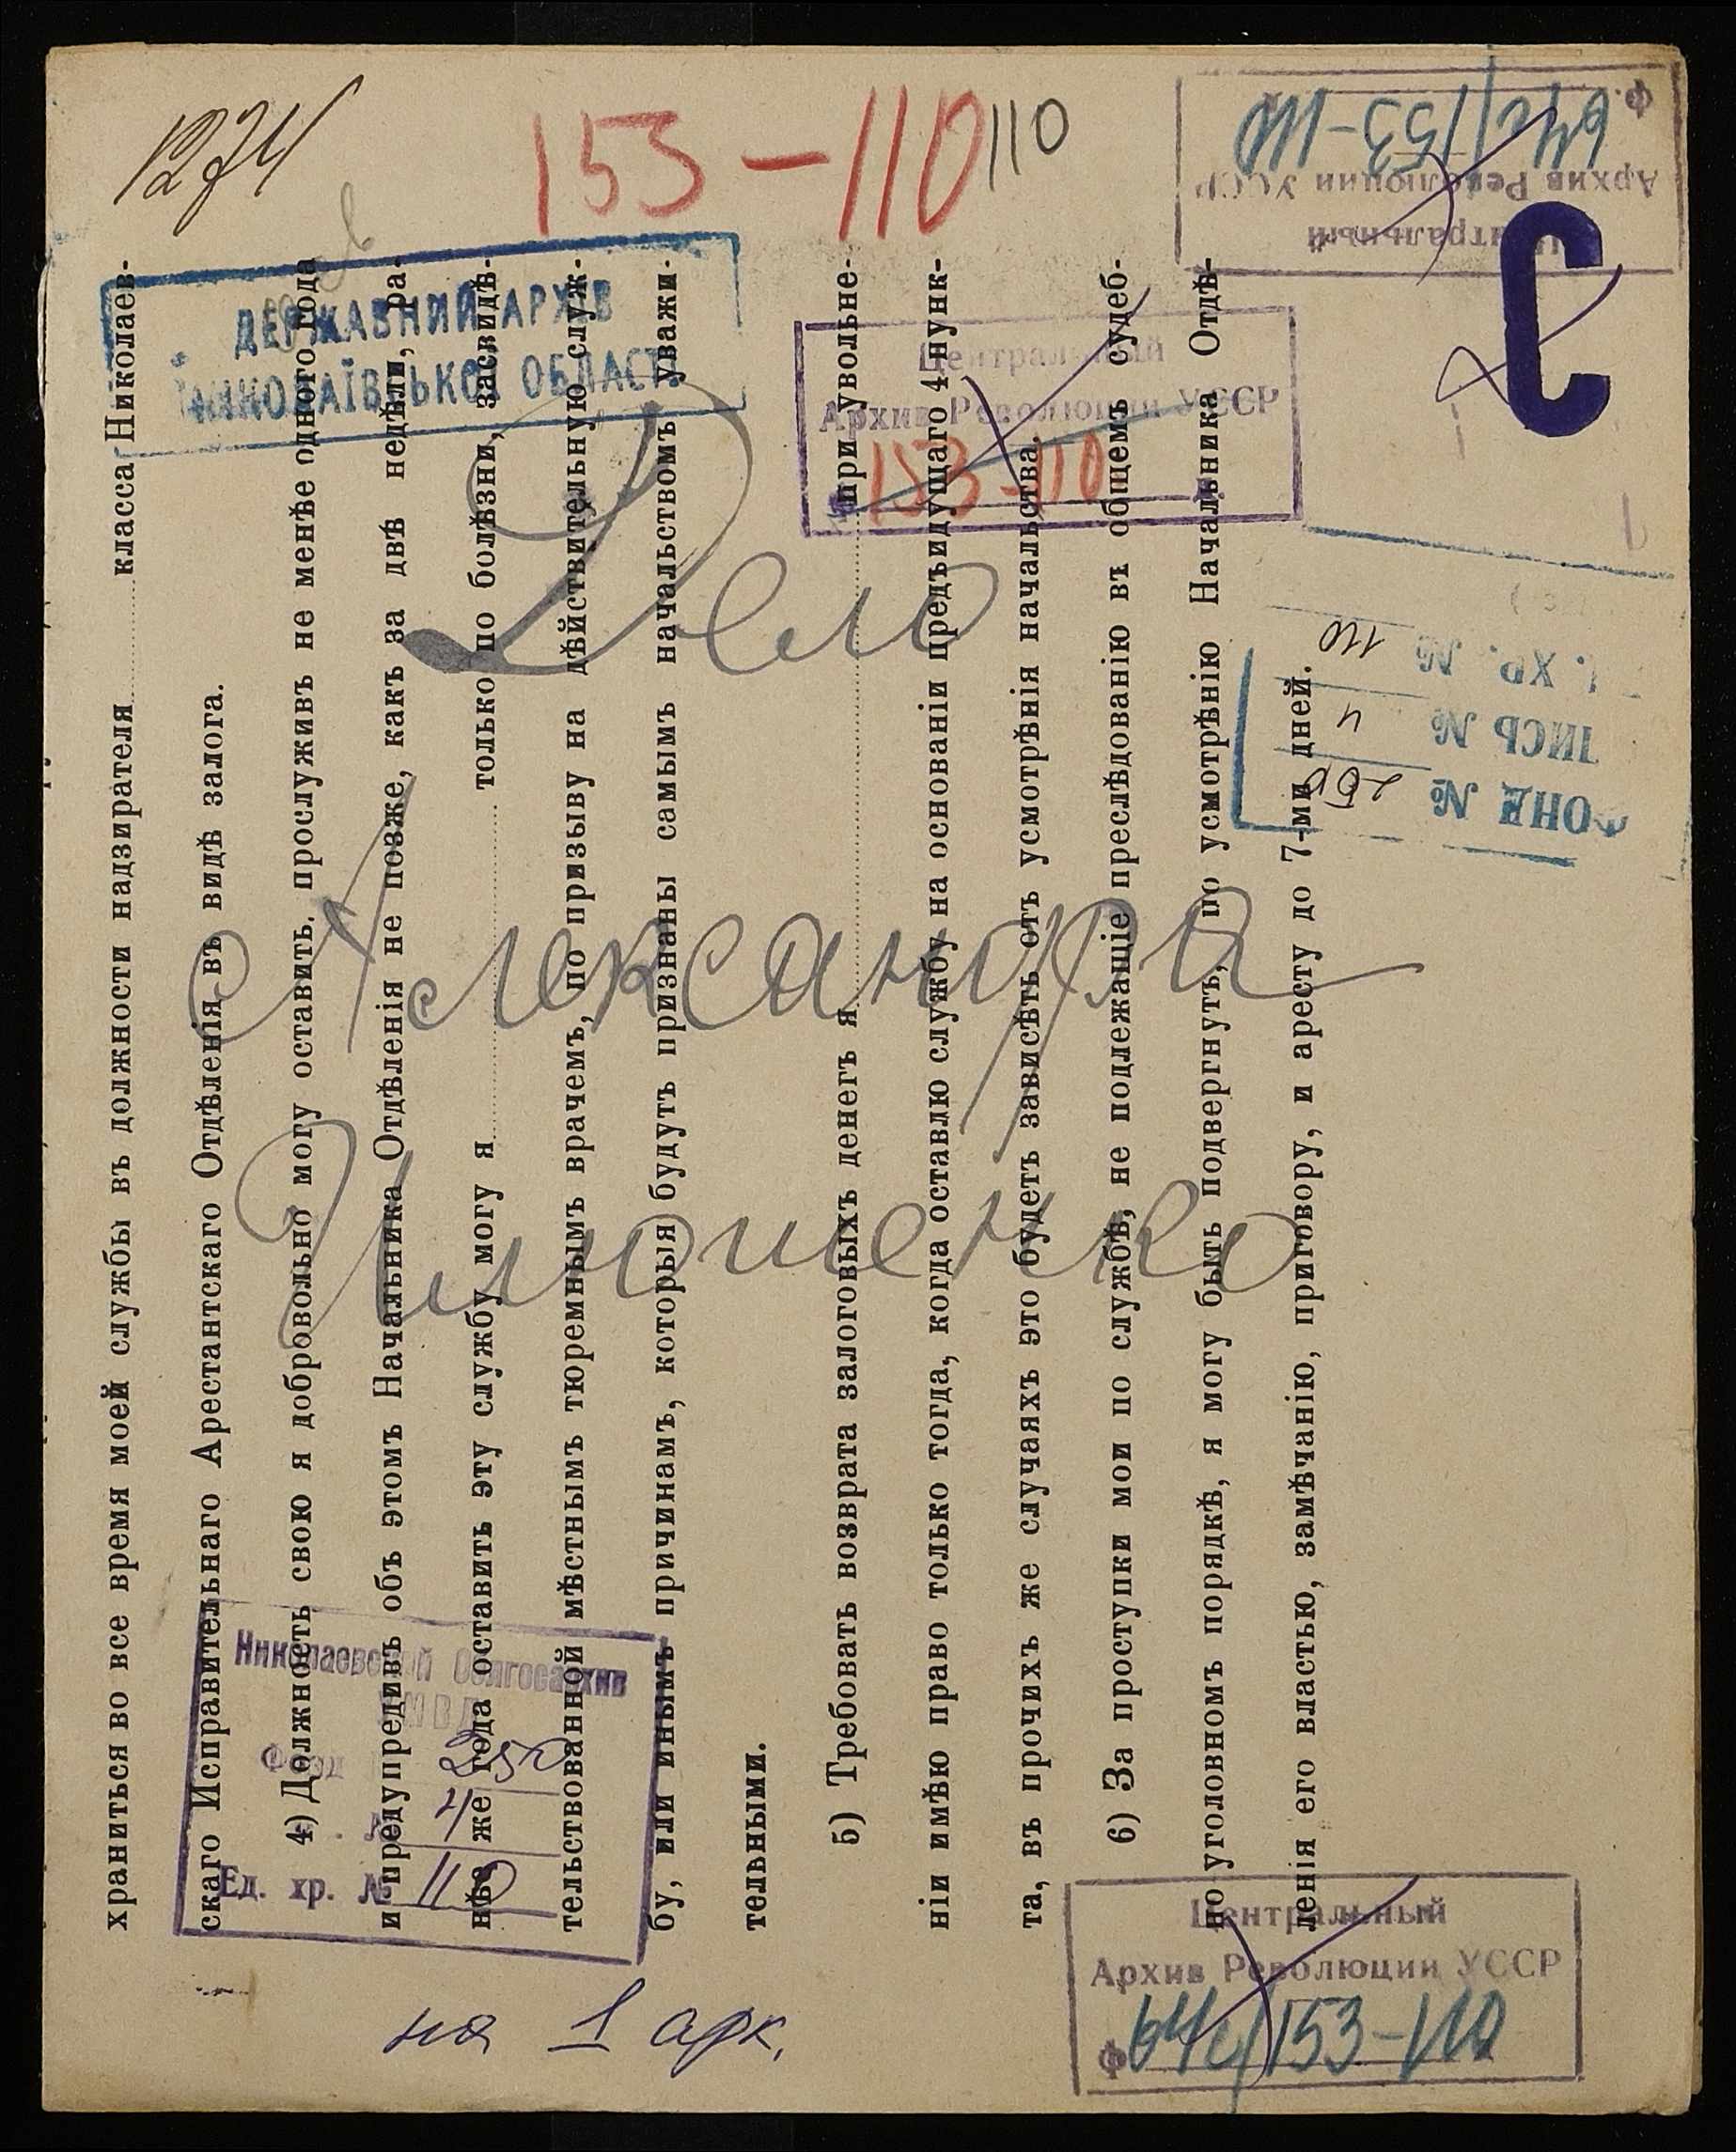 1274
153-110
110
Центральный
Архив Революции УССР
Ф. 64с/153-110
ДЕРЖАВНИЙ АРХІВ
МИКОЛАЇВСЬКОЇ ОБЛАСТІ
Центральный
Архив Революции УССР
153-110
С
ФОНД № 250
ОПИСЬ № 4
ХР. № 110
Дело
Александра
храниться во все время моей службы въ должности надзирателя класса Николаев-
скаго Исправительнаго Арестантскаго Отдѣленія въ видѣ залога.
4) Должность свою я добровольно могу оставить, прослуживъ не менѣе одного года
и предупредивъ объ этомъ Начальника Отдѣленія не позже, какъ за двѣ недѣли, ра-
нѣе же года оставить эту службу могу я только по болѣзни, засвидѣ-
тельствованной мѣстнымъ тюремнымъ врачемъ, по призыву на дѣйствительную служ-
бу, или инымъ причинамъ, которыя будутъ признаны самымъ начальствомъ уважи-
тельными.
5) Требовать возврата залоговыхъ денегъ я при увольне-
ніи имѣю право только тогда, когда оставлю службу на основаніи предъидущаго 4 пунк-
та, въ прочихъ же случаяхъ это будетъ зависѣть отъ усмотрѣнія начальства.
6) За проступки мои по службѣ, не подлежащіе преслѣдованію въ общемъ судеб-
но уголовномъ порядкѣ, я могу быть подвергнутъ, по усмотрѣнію Начальника Отдѣ-
ленія его властью, замѣчанію, приговору, и аресту до 7-ми дней.
Николаевский Облгосархив
УМВД
Фонд 250
4
Ед. хр. № 110
Центральный
Архив Революции УССР
Ф 64с/153-110
на 1 арк.